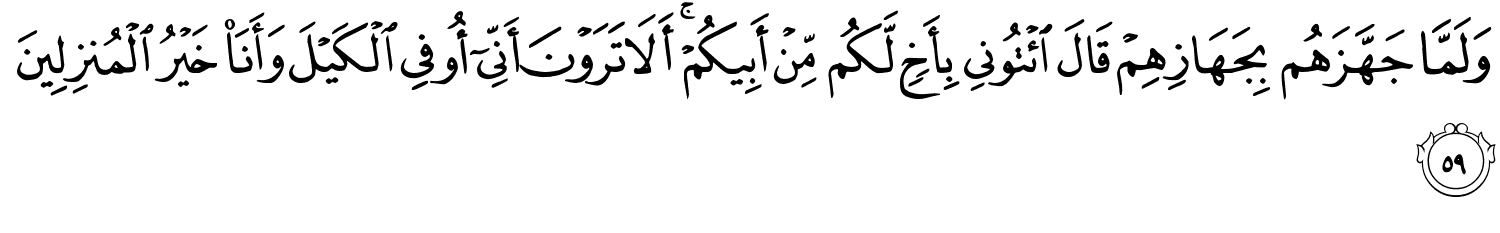 وَلَمَّا جَهَّزَهُم بِجَهَازِهِمْ قَالَ ٱئْتُونِى بِأَخٍ لَّكُم مِّنْ أَبِيكُمْ ۚ أَلَا تَرَوْنَ أَنِّىٓ أُوفِى ٱلْكَيْلَ وَأَنَا۠ خَيْرُ ٱلْمُنزِلِينَ
٥٩